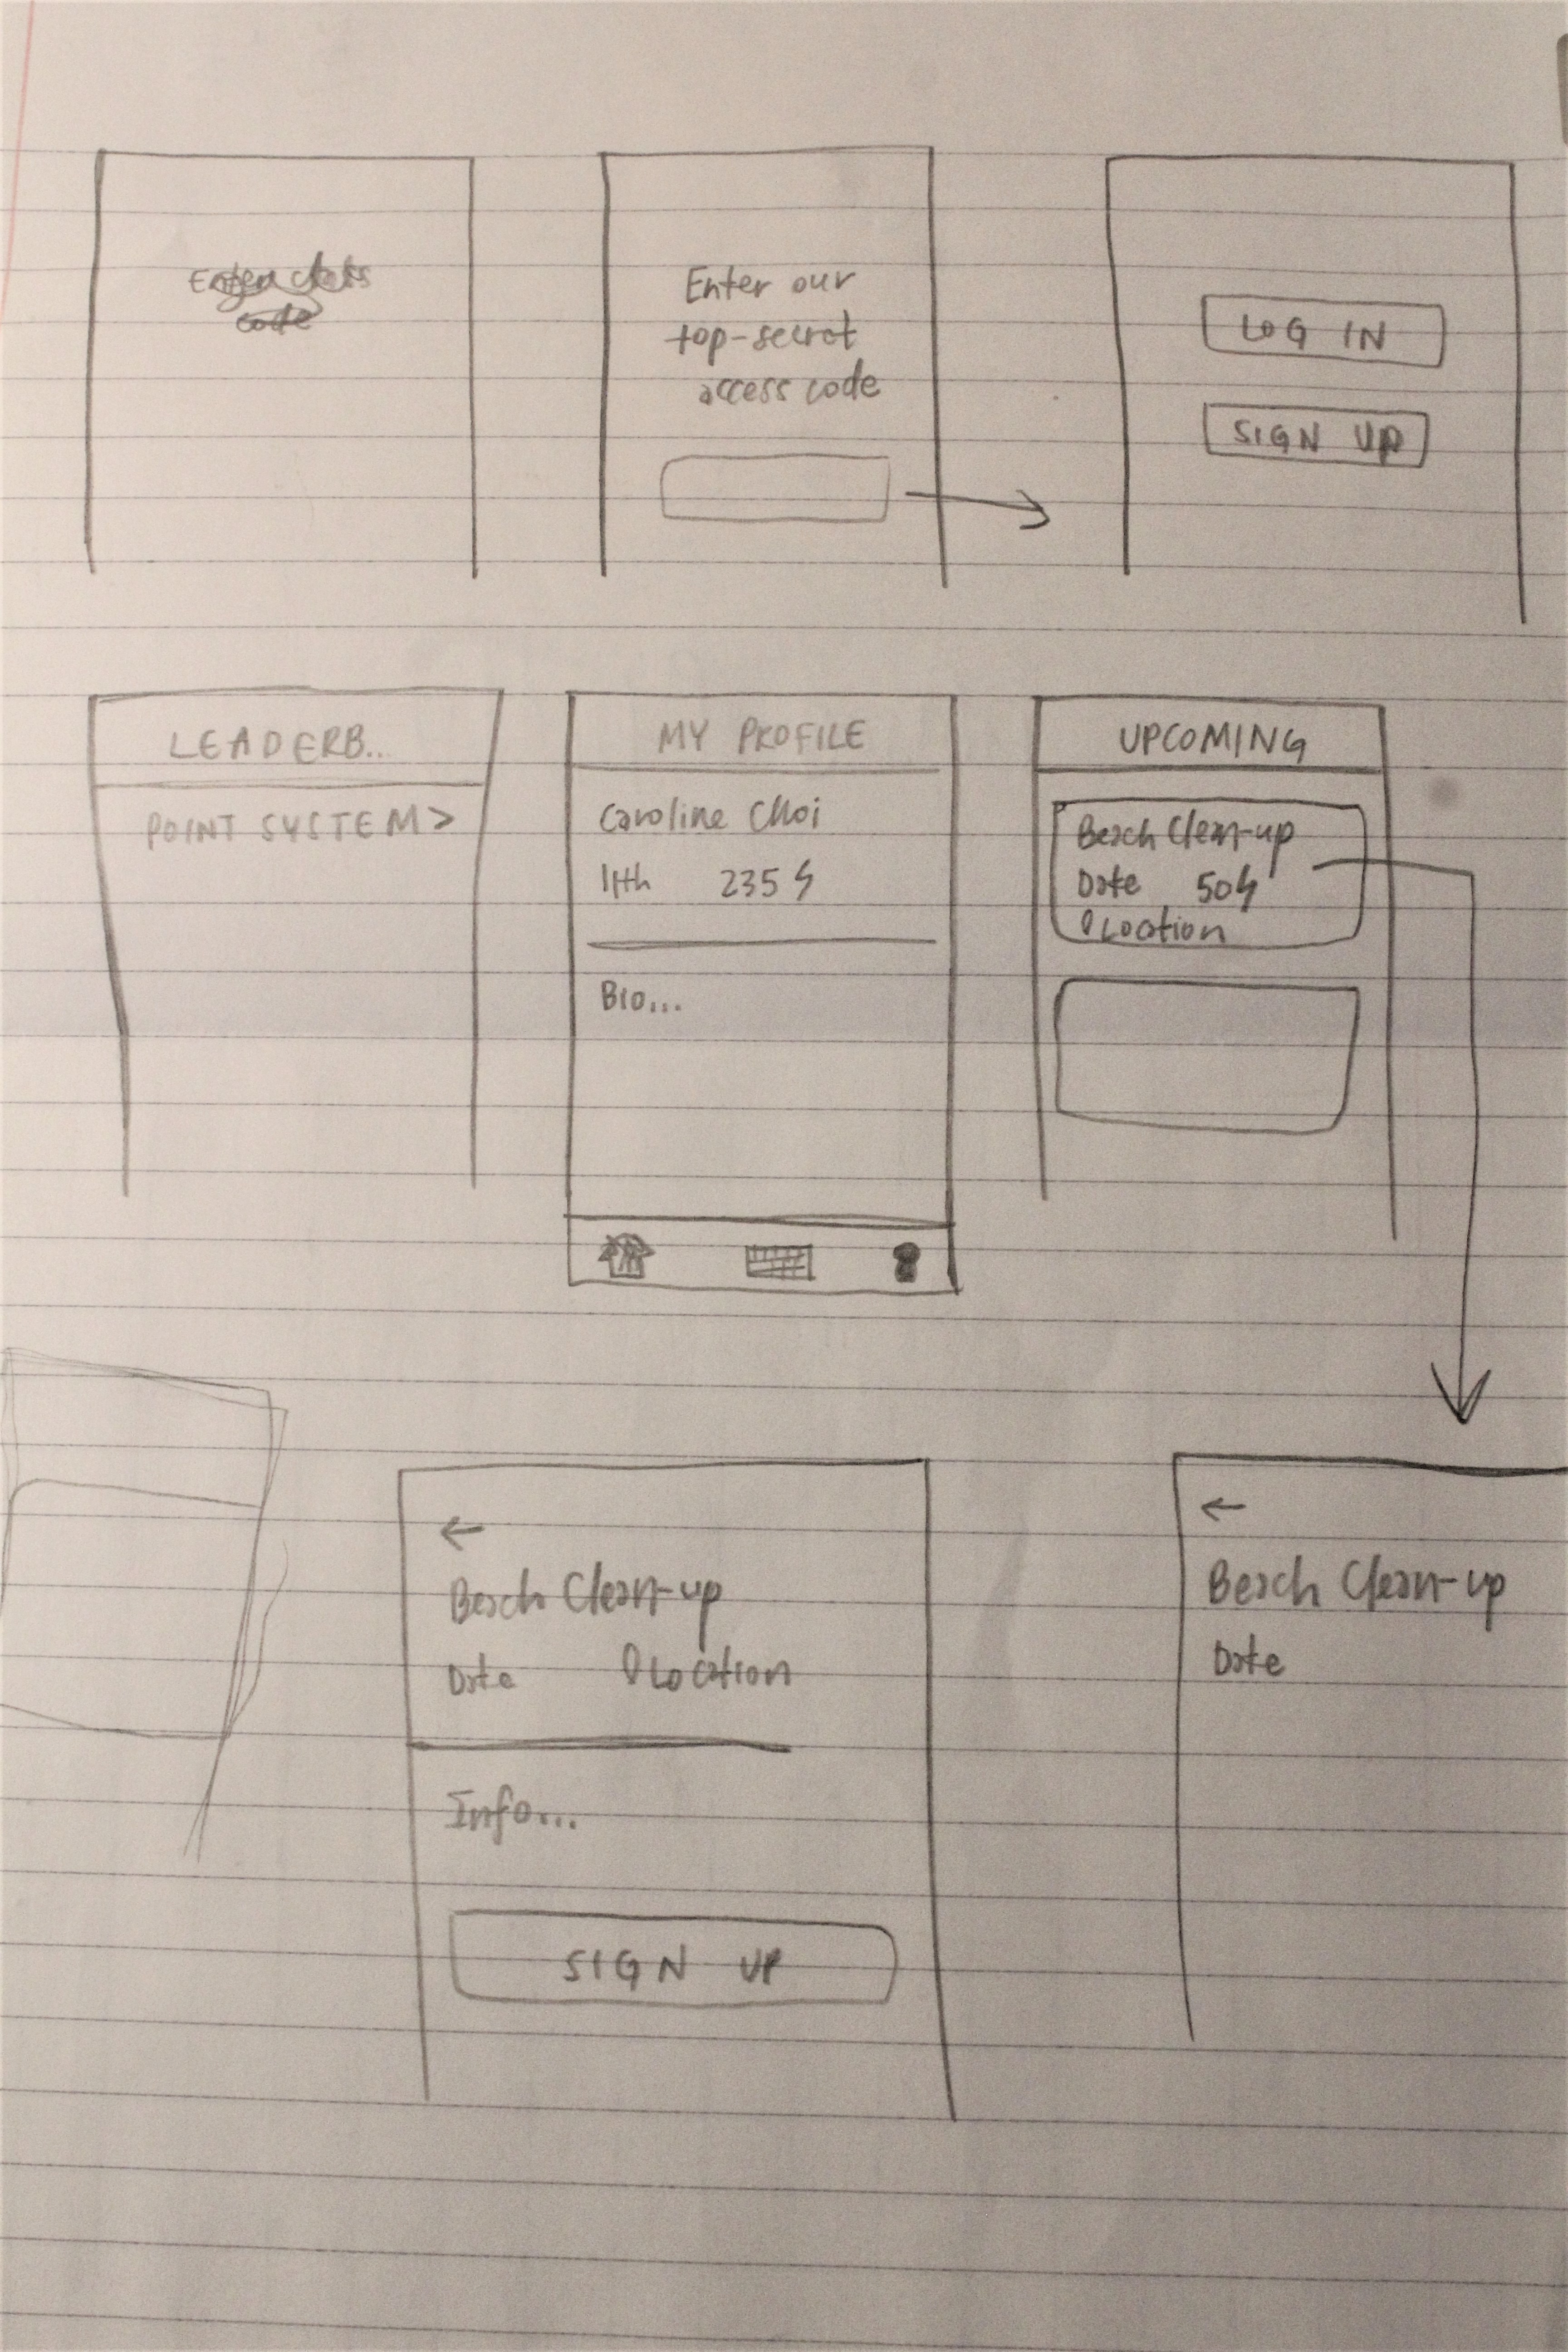 Enter
code
Enter our
top-secret
access code
LOG IN
SIGN UP
LEADERB..
POINT SYSTEM >
MY PROFILE
Caroline Choi
11th 235
Bio...
UPCOMING
Beach Clean-up
Date 50
Location
←
Beach Clean-up
Date Location
Info...
SIGN UP
←
Beach Clean-up
Date